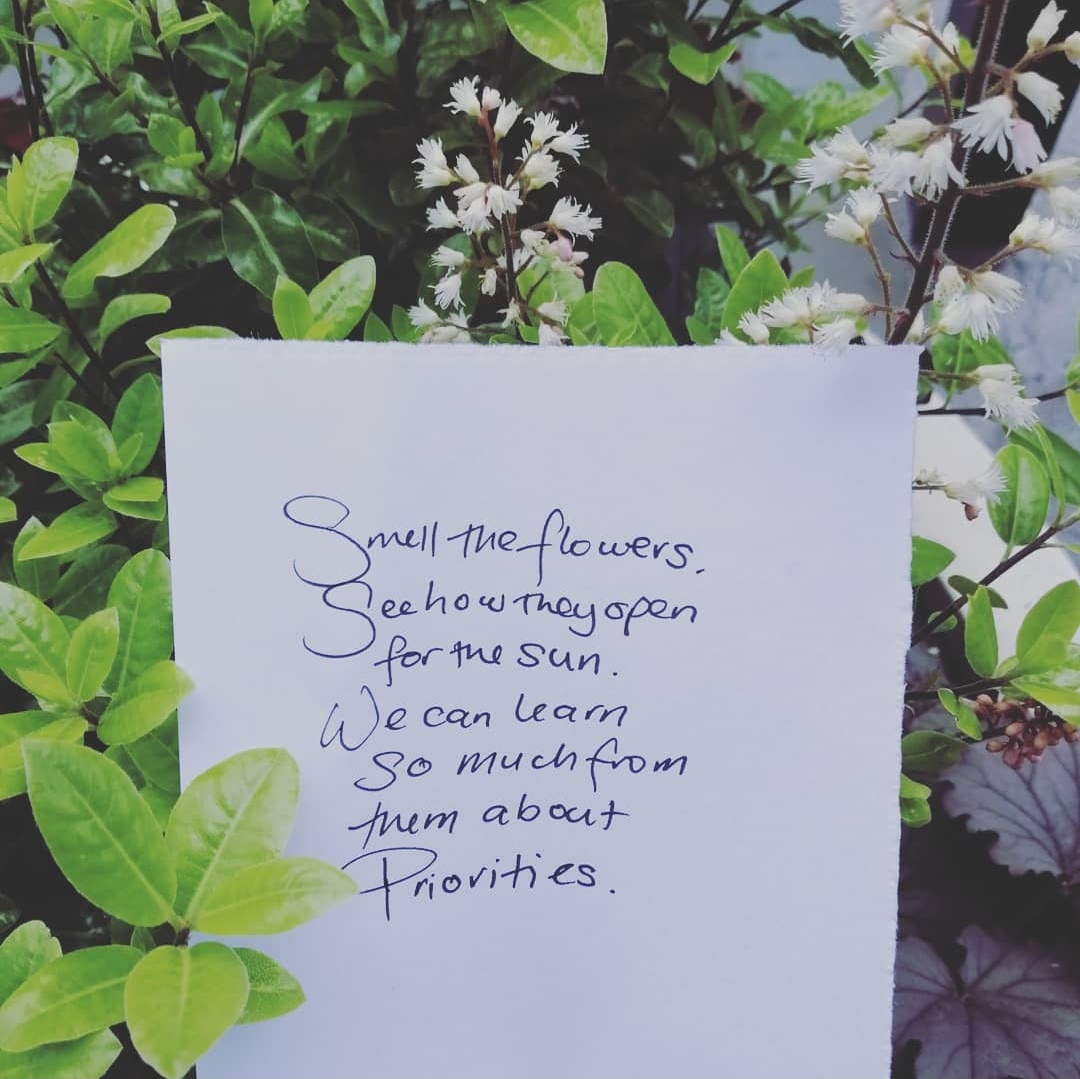 Smell the flowers.
See how they open
for the sun.
We can learn
so much from
them about
Priorities.